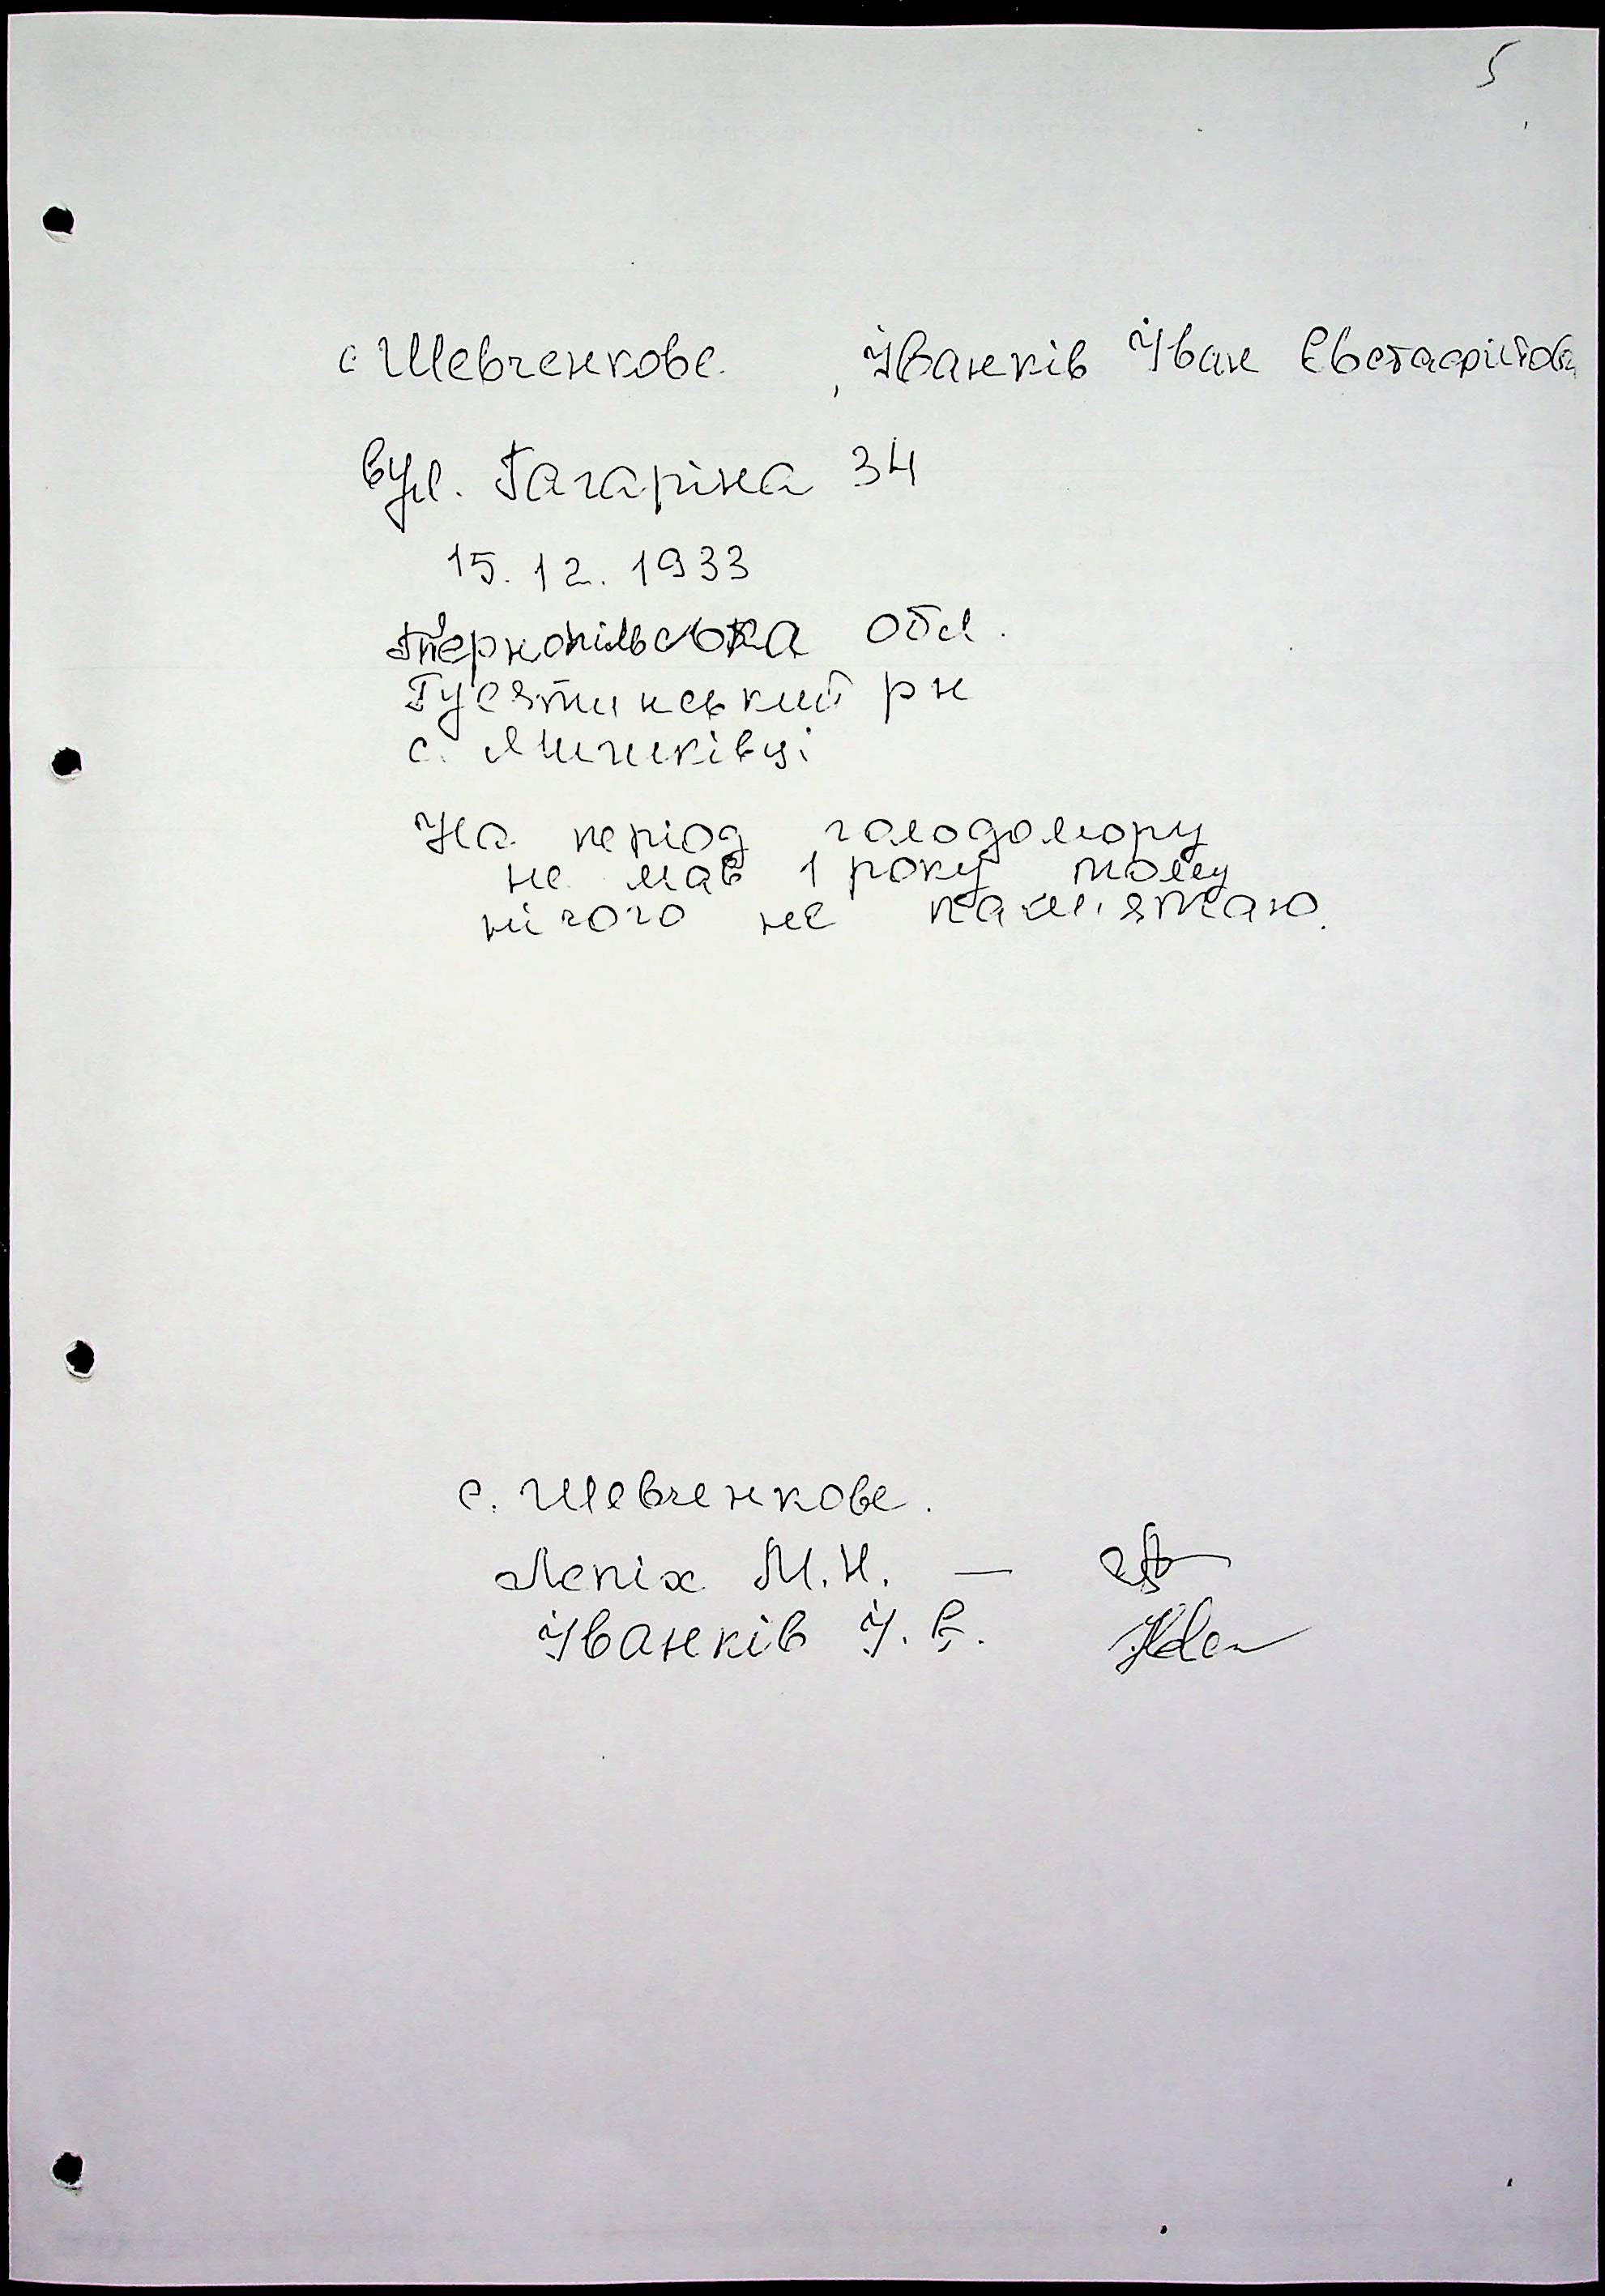 5
с Шевченкове. Іванків Іван Євстафійов
вул. Гагаріна 34
15. 12. 1933
Тернопільська обл.
Гусятинський рн
с. Личківці
На період голодомору
не мав 1 року тому
нічого не пам'ятаю.
с. Шевченкове.
Лепіх М. Н. —
Іванків І. Є.